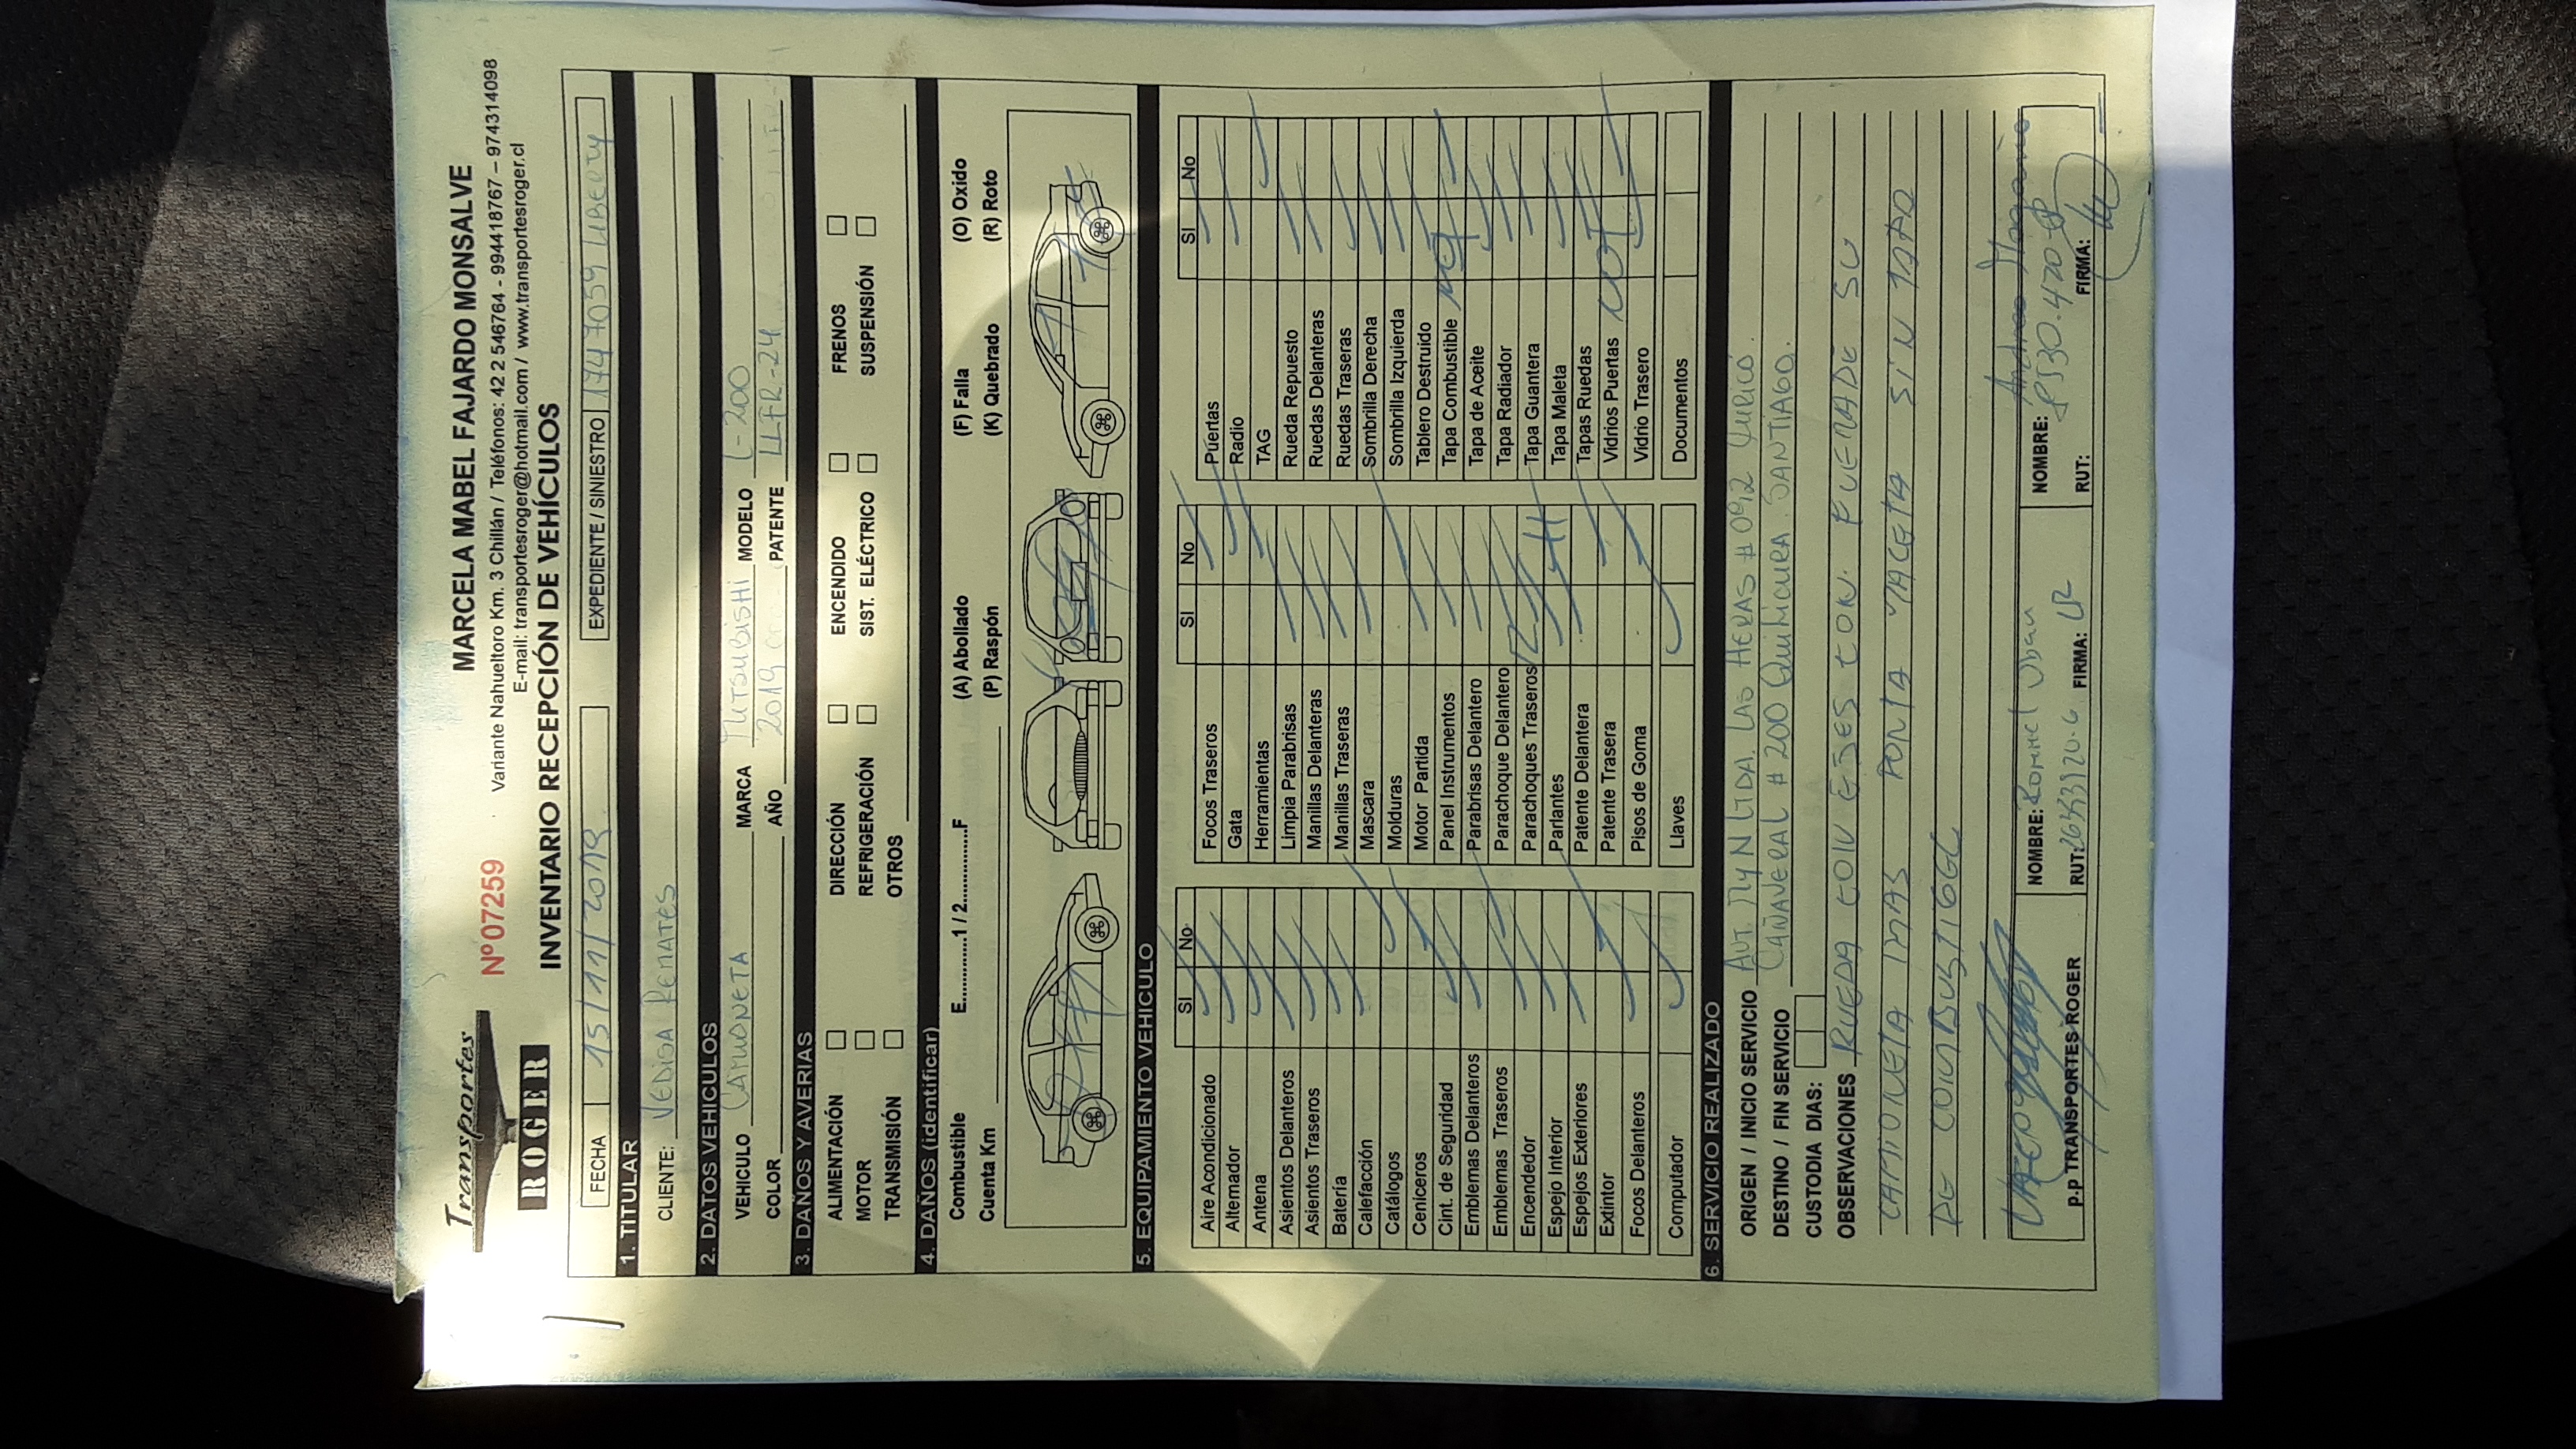 Transportes
ROGER
Nº 07259
MARCELA MABEL FAJARDO MONSALVE
Variante Nahueltoro Km. 3 Chillán / Teléfonos: 42 2 546764 - 994418767 – 974314098
E-mail: transportesroger@hotmail.com / www.transportesroger.cl
INVENTARIO RECEPCIÓN DE VEHÍCULOS
FECHA 15/11/2019 EXPEDIENTE / SINIESTRO 1747059 LIBERTY
1. TITULAR
CLIENTE: VEDISA REMATES
2. DATOS VEHICULOS
VEHICULO CAMIONETA MARCA MITSUBISHI MODELO L-200
COLOR AÑO 2019 PATENTE LLFR-24
3. DAÑOS Y AVERIAS
ALIMENTACIÓN DIRECCIÓN ENCENDIDO FRENOS
MOTOR REFRIGERACIÓN SIST. ELÉCTRICO SUSPENSIÓN
TRANSMISIÓN OTROS
4. DAÑOS (identificar)
Combustible E............1 / 2..............F (A) Abollado (F) Falla (O) Oxido
Cuenta Km (P) Raspón (K) Quebrado (R) Roto
5. EQUIPAMIENTO VEHICULO
SI No SI No SI No
Aire Acondicionado Focos Traseros Puertas
Alternador Gata Radio
Antena Herramientas TAG
Asientos Delanteros Limpia Parabrisas Rueda Repuesto
Asientos Traseros Manillas Delanteras Ruedas Delanteras
Batería Manillas Traseras Ruedas Traseras
Calefacción Mascara Sombrilla Derecha
Catálogos Molduras Sombrilla Izquierda
Ceniceros Motor Partida Tablero Destruido
Cint. de Seguridad Panel Instrumentos Tapa Combustible
Emblemas Delanteros Parabrisas Delantero Tapa de Aceite
Emblemas Traseros Parachoque Delantero Tapa Radiador
Encendedor Parachoques Traseros Tapa Guantera
Espejo Interior Parlantes Tapa Maleta
Espejos Exteriores Patente Delantera Tapas Ruedas
Extintor Patente Trasera Vidrios Puertas
Focos Delanteros Pisos de Goma Vidrio Trasero
Computador Llaves Documentos
6. SERVICIO REALIZADO
ORIGEN / INICIO SERVICIO AUT. MYN LTDA. LAS HERAS # 092 CURICO.
DESTINO / FIN SERVICIO CAÑAVERAL # 200 QUILICURA. SANTIAGO.
CUSTODIA DIAS:
OBSERVACIONES RUEDA CON EJES CON FUERA DE SU
CAMIONETA MAS PORTA MALETA SIN TAPA
DE COMBUSTIBLE
p.p TRANSPORTES ROGER
NOMBRE: Rommel
RUT: FIRMA:
NOMBRE: Andres
RUT: FIRMA: